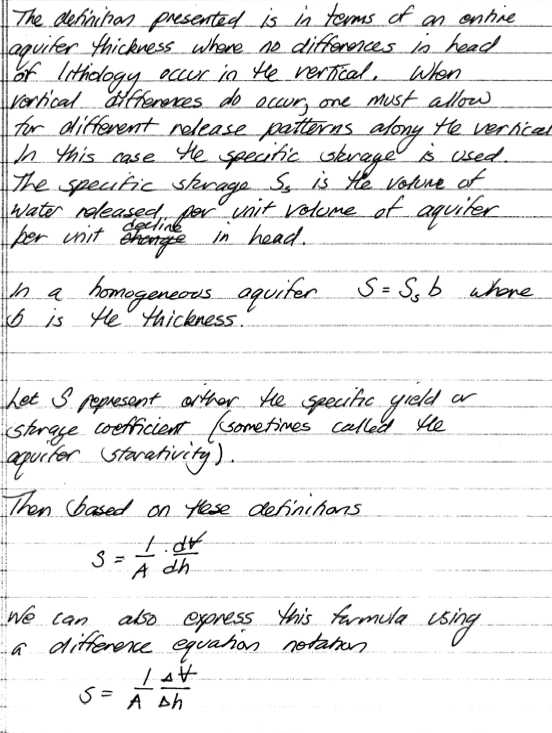 The definition presented is in terms of an entire
aquifer thickness where no differences in head
of lithology occur in the vertical. When
vertical differences do occur, one must allow
for different release patterns along the vertical
In this case the specific storage is used.
The specific storage Ss is the volume of
water released per unit volume of aquifer
per unit change decline in head.
In a homogeneous aquifer S = Ss b where
b is the thickness.
Let S represent either the specific yield or
storage coefficient (sometimes called the
aquifer storativity).
Then based on these definitions
S = 1/A · dV/dh
We can also express this formula using
a difference equation notation
S = 1/A ΔV/Δh